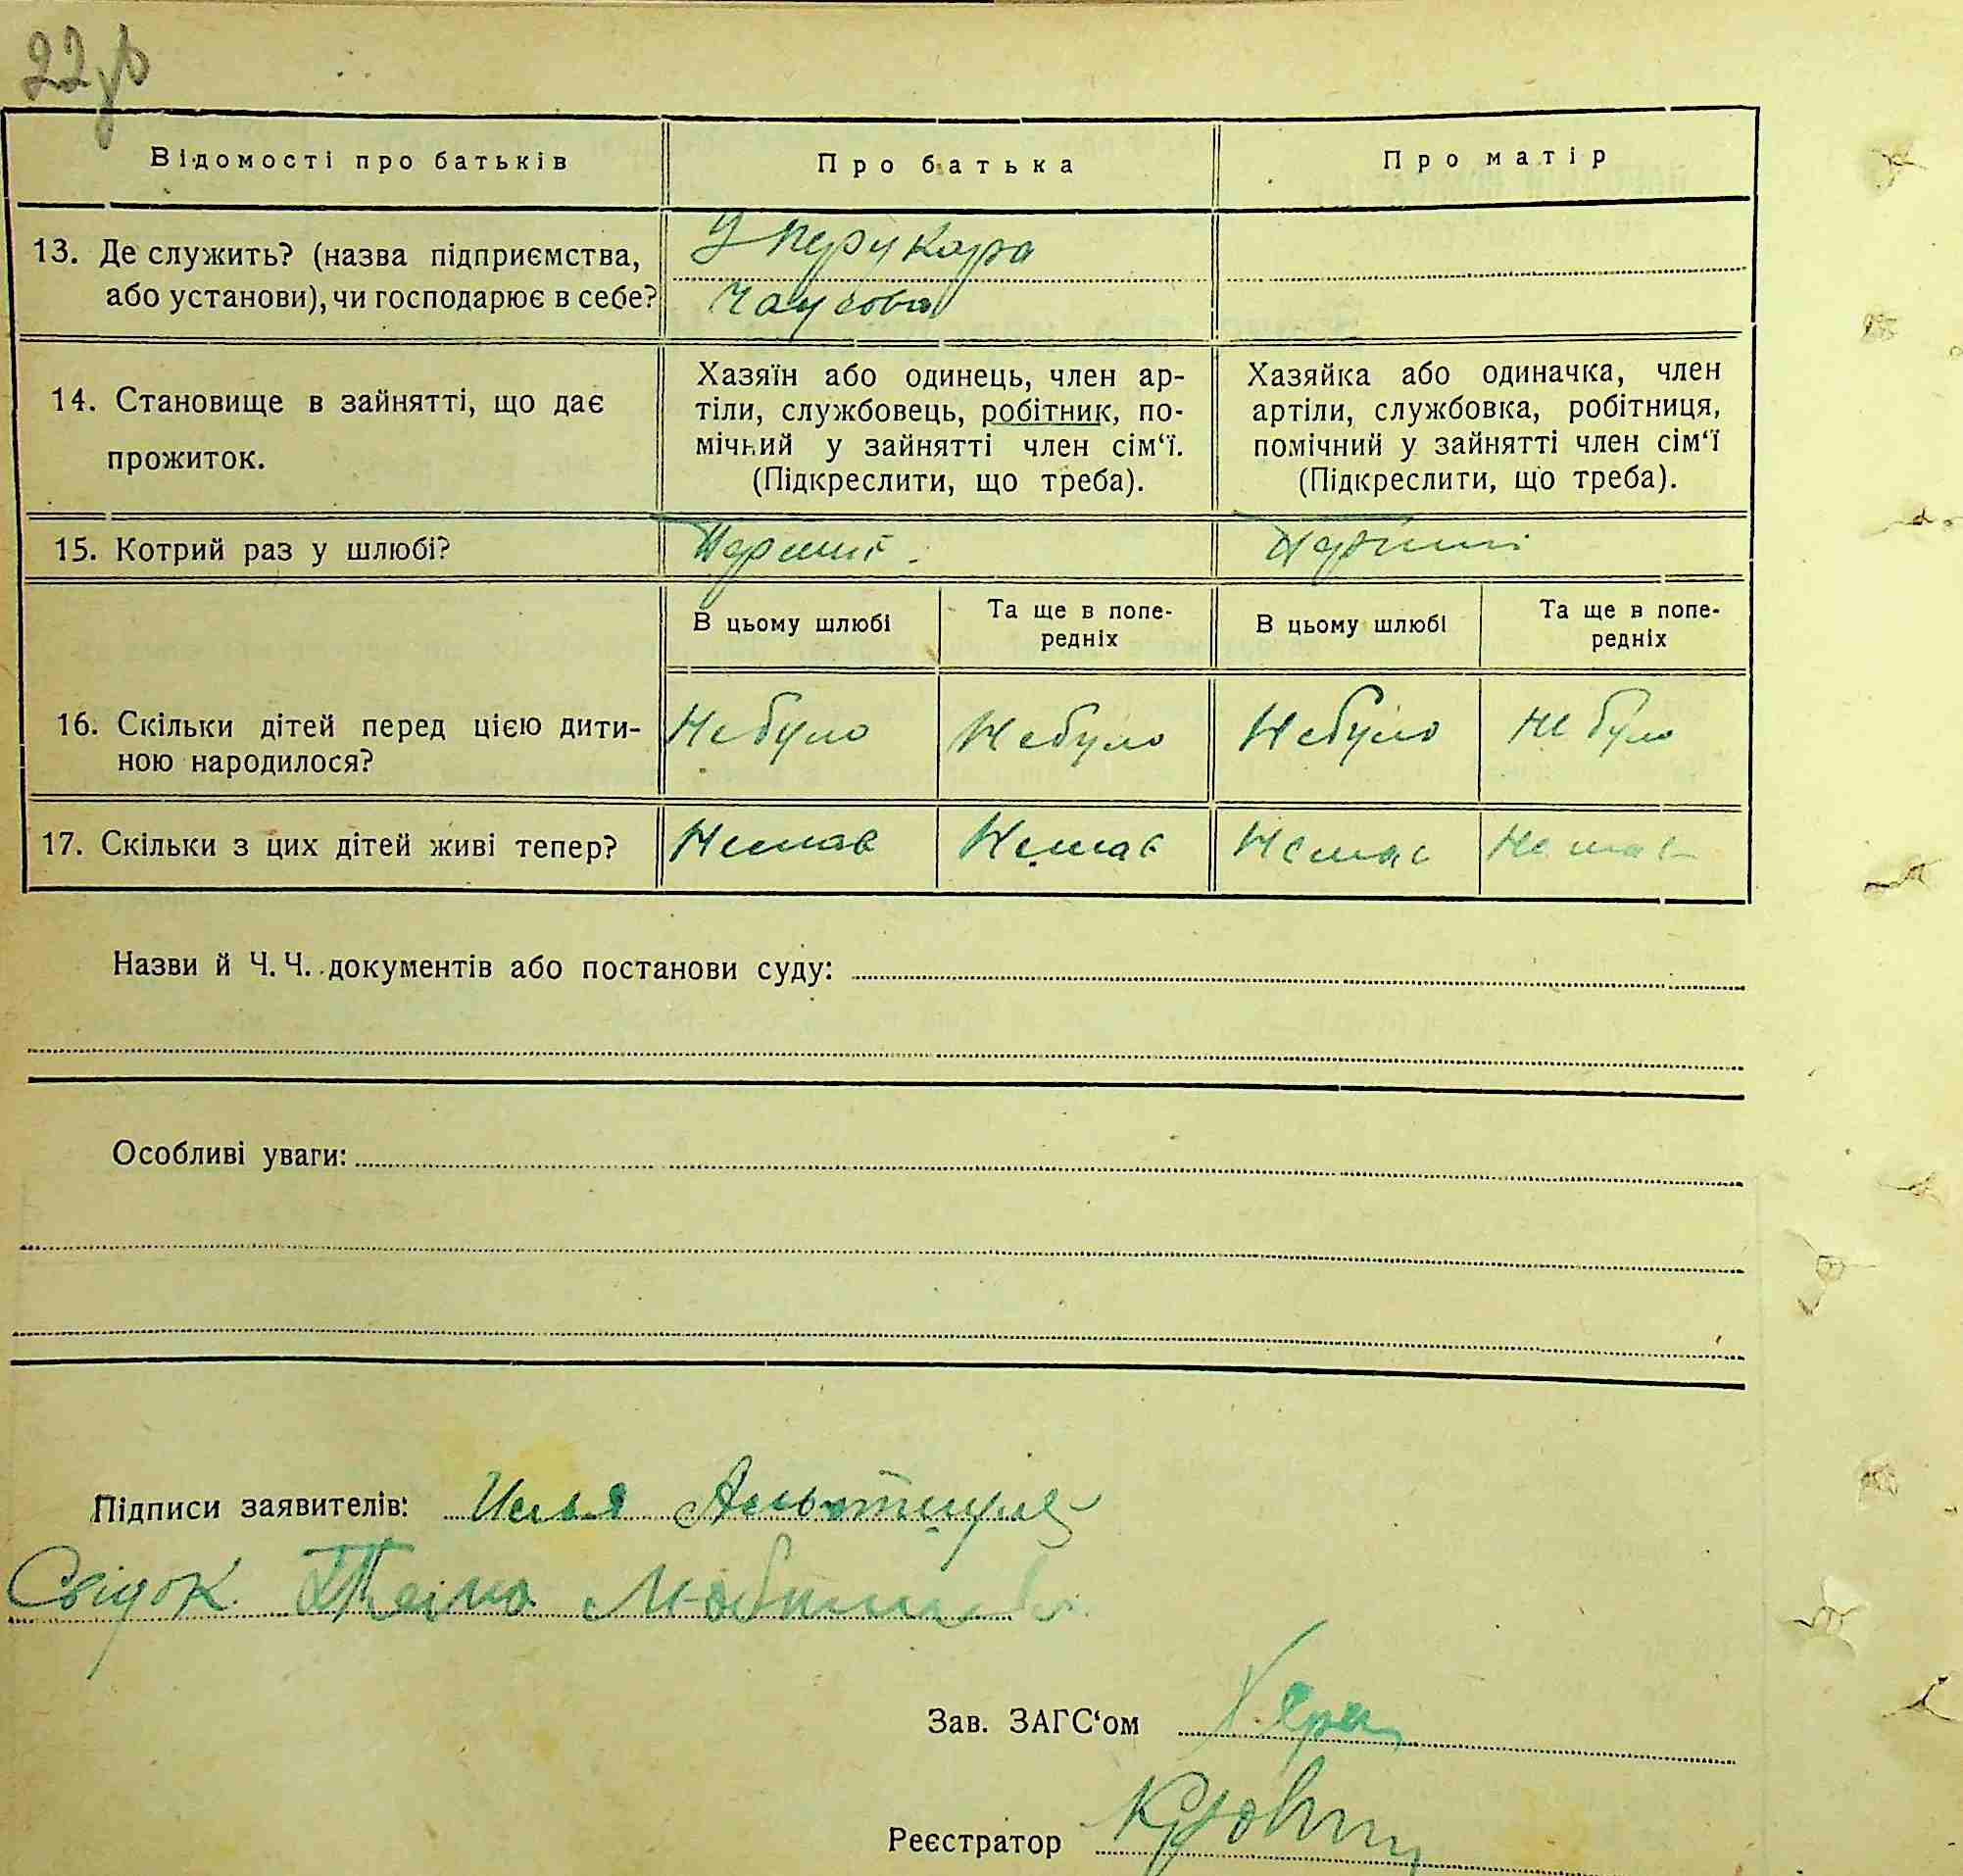 22
Відомості про батьків
Про батька
Про матір
13. Де служить? (назва підприємства,
або установи), чи господарює в себе?
У перукара
Чаусова
14. Становище в зайнятті, що дає
прожиток.
Хазяїн або одинець, член ар-
тіли, службовець, робітник, по-
мічний у зайнятті член сім‘ї.
(Підкреслити, що треба).
Хазяйка або одиначка, член
артіли, службовка, робітниця,
помічний у зайнятті член сім‘ї
(Підкреслити, що треба).
15. Котрий раз у шлюбі?
Перший
Перший
В цьому шлюбі
Та ще в попе-
редніх
В цьому шлюбі
Та ще в попе-
редніх
16. Скільки дітей перед цією дити-
ною народилося?
Небуло
Небуло
Небуло
Не було
17. Скільки з цих дітей живі тепер?
Немає
Немає
Немає
Немає
Назви й Ч. Ч. документів або постанови суду:
Особливі уваги:
Підписи заявителів: Илья
Свідок
Зав. ЗАГС‘ом
Реєстратор